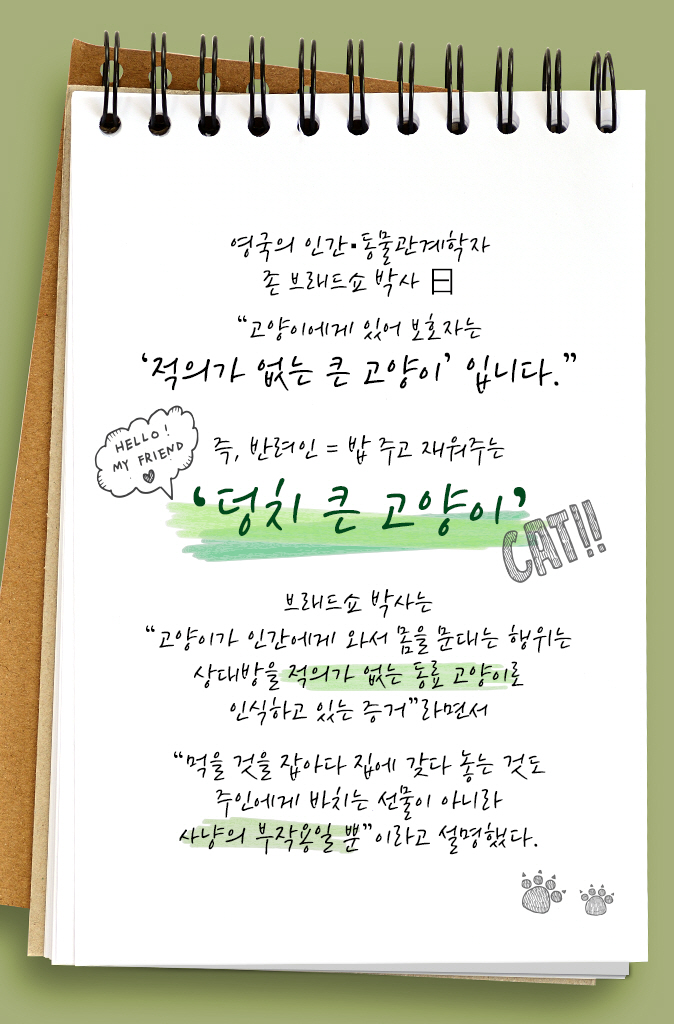 영국의 인간·동물관계학자
존 브래드쇼 박사 曰
“고양이에게 있어 보호자는
‘적의가 없는 큰 고양이’ 입니다.”
HELLO!
MY FRIEND
즉, 반려인 = 밥 주고 재워주는
‘덩치 큰 고양이’
CAT!!
브래드쇼 박사는
“고양이가 인간에게 와서 몸을 문대는 행위는
상대방을 적의가 없는 동료 고양이로
인식하고 있는 증거”라면서
“먹을 것을 잡아다 집에 갖다 놓는 것도
주인에게 바치는 선물이 아니라
사냥의 부작용일 뿐”이라고 설명했다.